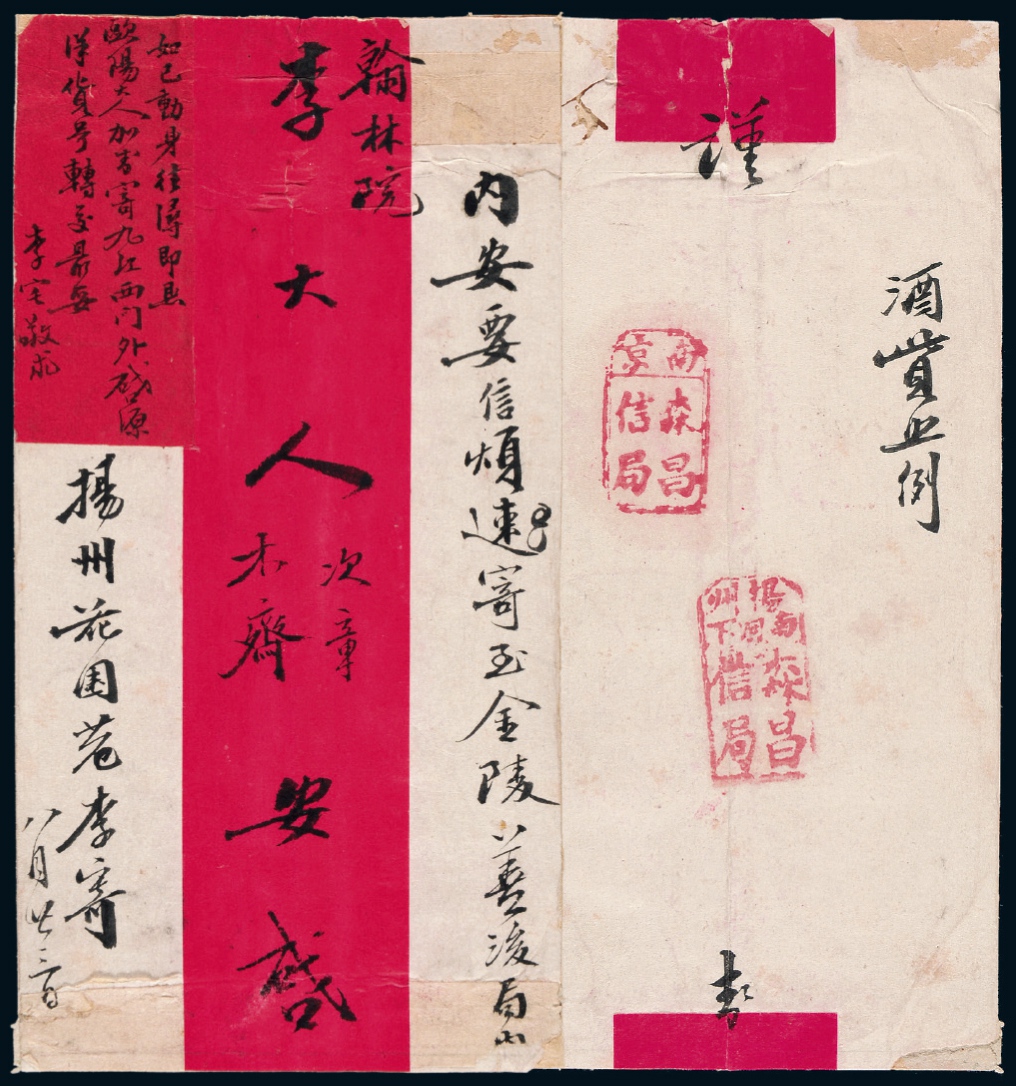 酒貲照例
謹
南京
森昌
信局
揚州
森昌
信局
內安要信煩速寄至金陵善後局
翰林院
李大人
次
木齋
安啟
如已動身往潯即懇
歐陽大人加封寄九江西門外啟源
洋貨號轉交最妥
李宅敬求
揚州花園巷李寄
八月廿二日